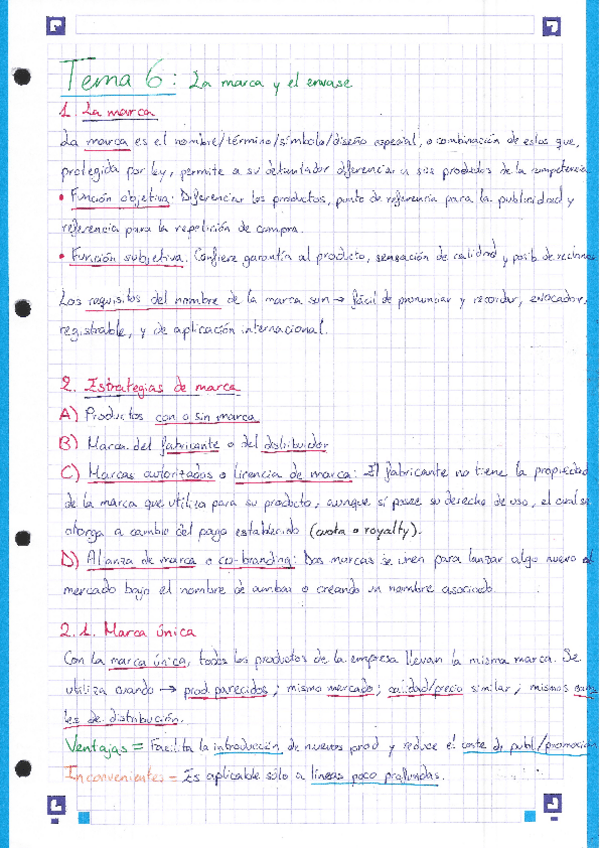 Tema 6: La marca y el envase
1. La marca
La marca es el nombre/término/símbolo/diseño especial, o combinación de estos que,
protegida por ley, permite a su detentador diferenciar a sus productos de la competencia
• Función objetiva: Diferenciar los productos, punto de referencia para la publicidad y
referencia para la repetición de compra.
• Función subjetiva: Confiere garantía al producto, sensación de calidad y posib. de
Los requisitos del nombre de la marca son → fácil de pronunciar y recordar, evocador,
registrable, y de aplicación internacional.
2. Estrategias de marca
A) Productos con o sin marca
B) Marca del fabricante o del distribuidor
C) Marcas autorizadas o licencia de marca: El fabricante no tiene la propiedad
de la marca que utiliza para su producto, aunque sí posee su derecho de uso, el cual se
otorga a cambio del pago establecido (cuota o royalty).
D) Alianza de marca o co-branding: Dos marcas se unen para lanzar algo nuevo al
mercado bajo el nombre de ambas o creando un nombre asociado.
2.1. Marca única
Con la marca única, todos los productos de la empresa llevan la misma marca. Se
utiliza cuando → prod parecidos; mismo mercado; calidad/precio similar; mismos cana
les de distribución.
Ventajas = Facilita la introducción de nuevos prod y reduce el coste de publ/promoción
Inconvenientes = Es aplicable sólo a líneas poco profundas.